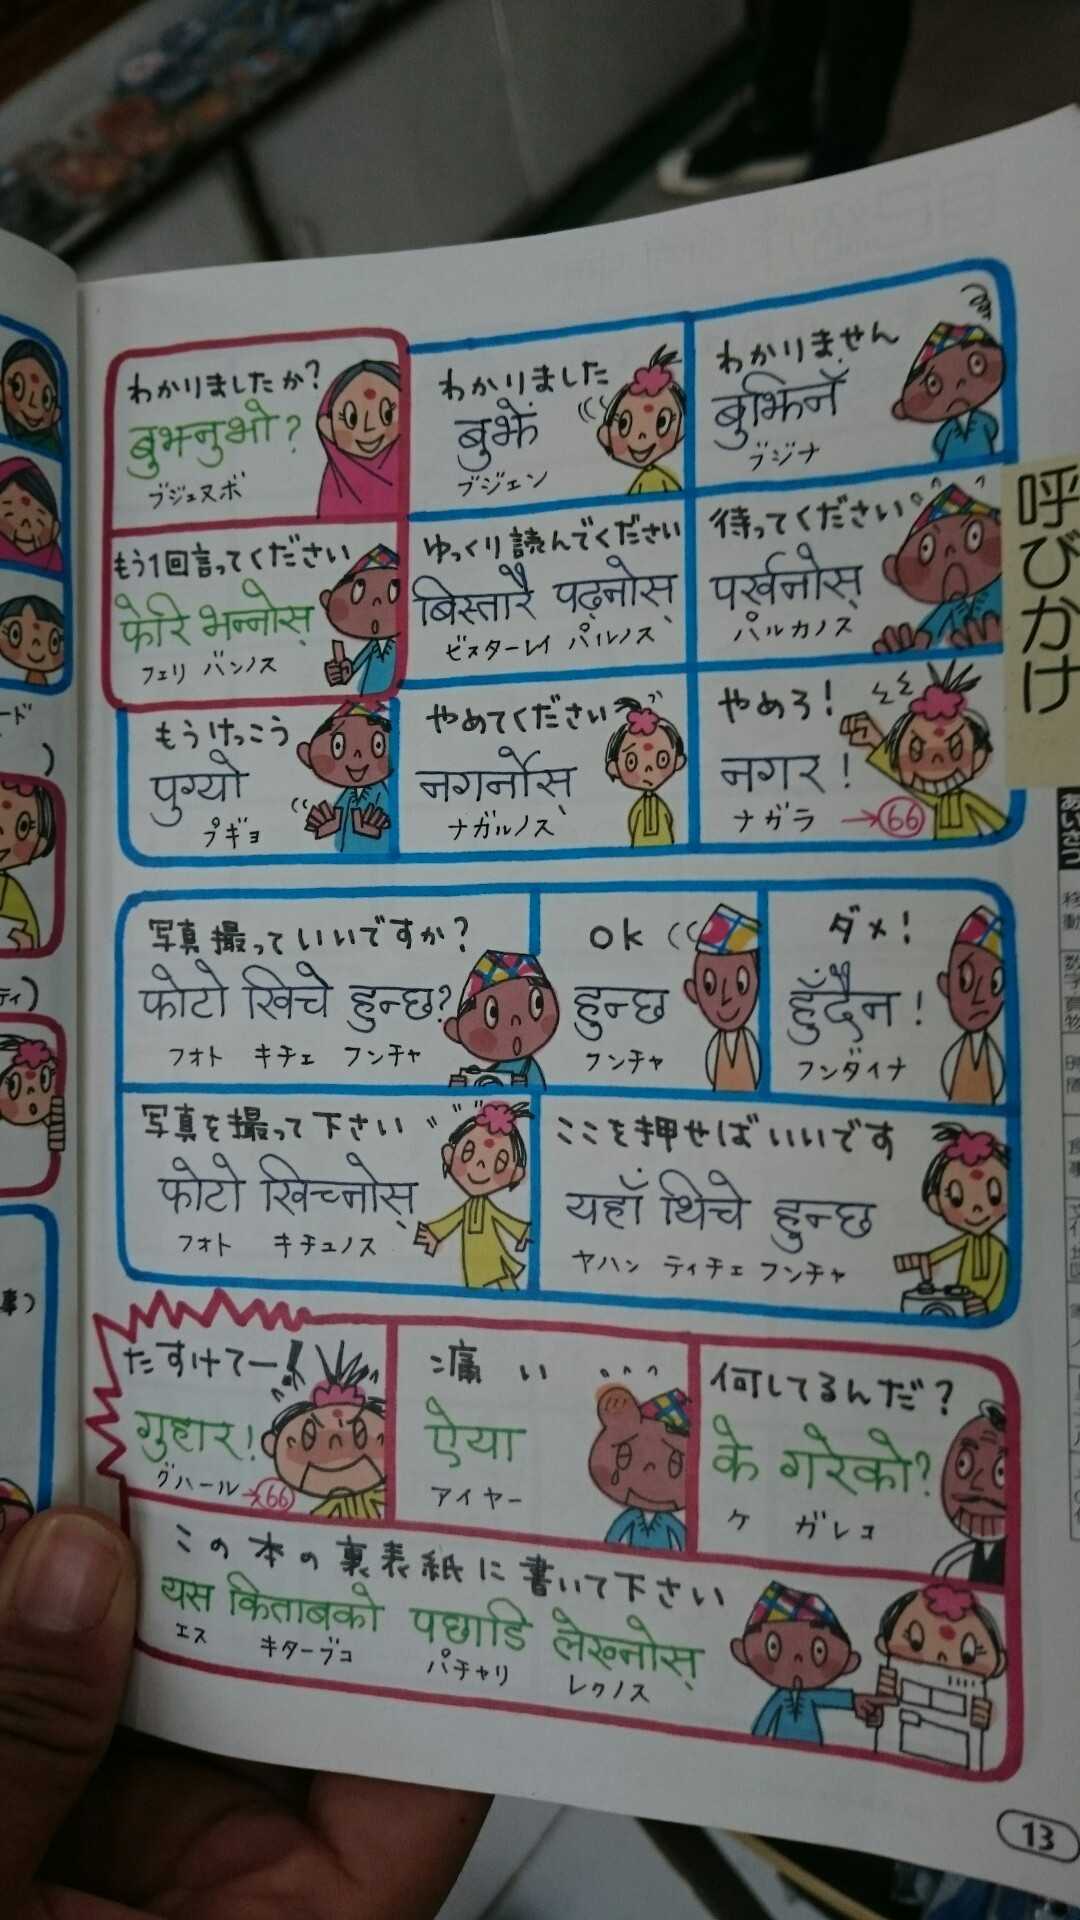 わかりましたか?
बुझ्नुभो?
ブジェヌボ
わかりました
बुझें
ブジェン
わかりません
बुझिनँ
ブジナ
もう1回言ってください
फेरि भन्नोस्
フェリ バンノス
ゆっくり読んでください
बिस्तारै पढ्नोस्
ビスターレイ パルノス
待ってください
पर्खनोस्
パルカノス
もうけっこう
पुग्यो
プギョ
やめてください
नगर्नोस्
ナガルノス
やめろ!
नगर!
ナガラ →66
写真撮っていいですか?
फोटो खिचे हुन्छ?
フォト キチェ フンチャ
ok
हुन्छ
フンチャ
ダメ!
हुँदैन!
フンダイナ
写真を撮って下さい
फोटो खिच्नोस्
フォト キチュノス
ここを押せばいいです
यहाँ थिचे हुन्छ
ヤハン ティチェ フンチャ
たすけてー!
गुहार!
グハール→66
痛い
ऐया
アイヤー
何してるんだ?
के गरेको?
ケ ガレコ
この本の裏表紙に書いて下さい
यस किताबको पछाडि लेख्नोस्
エス キターブコ パチャリ レクノス
呼びかけ
あいさつ
13